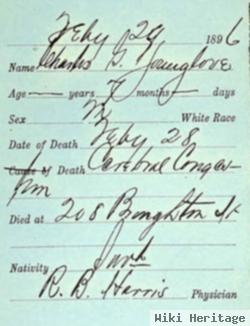 Feby 29 1896
Name Charles G. Younglove
Age years 7 months days
Sex M White Race
Date of Death Feby 28
Cause of Death Cerebral Conges-
tion
Died at 208 Broughton St
Nativity
R. B. Harris Physician
Wiki Heritage